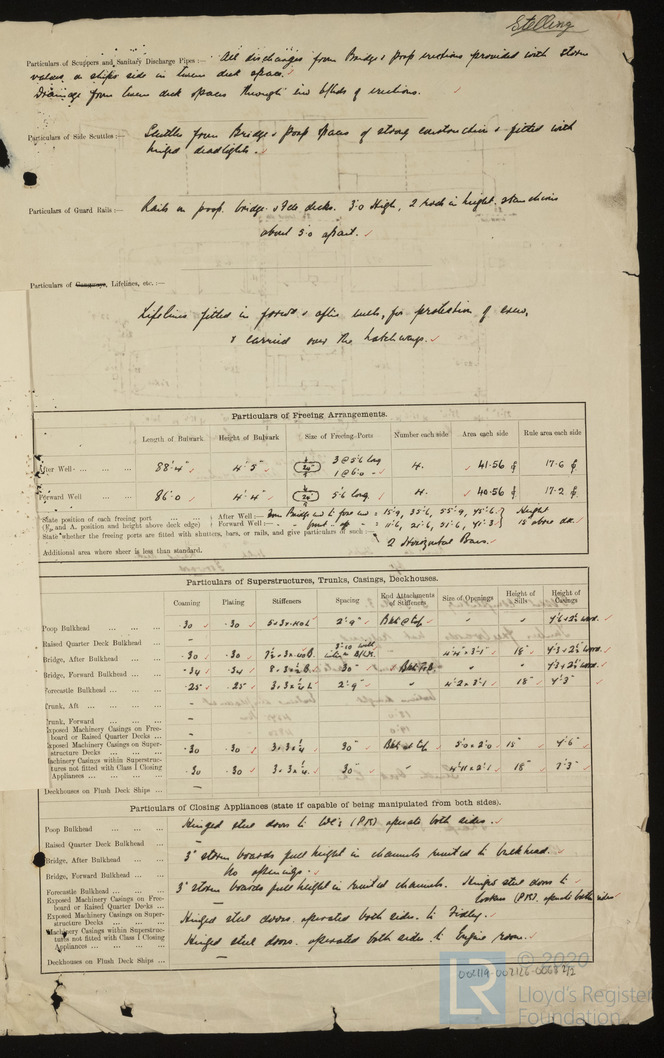 Stelling
Particulars of Scuppers and Sanitary Discharge Pipes :— All discharges from Bridge & poop erections provided with storm
valves on ships side in tween deck spaces.
Drainage from tween deck spaces through bhds of erections.
Particulars of Side Scuttles :— Scuttles from Bridge & poop spaces of strong construction & fitted with
hinged deadlights.
Particulars of Guard Rails :— Rails on poop, bridge & decks. 3'0 High, 2 rods in height, stanchions
about 5'0 apart.
Particulars of Gangways, Lifelines, etc. :—
Lifelines fitted in forwd & after wells, for protection of crew,
& carried over the hatchways.
Particulars of Freeing Arrangements.
Length of Bulwark Height of Bulwark Size of Freeing Ports Number each side Area each side Rule area each side
After Well 88'4" 4'5" 24" 3 @ 5'6 long
1 @ 6'0 4. 41.56 17.6
Forward Well 86'0 4'4" 24" 5'6 long 4. 40.56 17.2
State position of each freeing port After Well :— From Bridge = 15'9, 35'6, 55'9, 75'6 Height
(F. and A. position and height above deck edge) Forward Well :— = 11'6, 21'6, 31'6, 41'3 15 above dk.
State whether the freeing ports are fitted with shutters, bars, or rails, and give particulars of such :— 2 Horizontal Bars.
Additional area where sheer is less than standard.
Particulars of Superstructures, Trunks, Casings, Deckhouses.
Coaming Plating Stiffeners Spacing End Attachments of Stiffeners Size of Openings Height of Sills Height of Casings
Poop Bulkhead .30 .30 2'9"
Raised Quarter Deck Bulkhead –
Bridge, After Bulkhead .30 .30 4'4 x 3'1" 18"
Bridge, Forward Bulkhead .34 .34 30"
Forecastle Bulkhead .25 .25 2'9" " 4'2 x 3'1 18" 4'3"
Trunk, Aft –
Trunk, Forward –
Exposed Machinery Casings on Free-
board or Raised Quarter Decks –
Exposed Machinery Casings on Super-
structure Decks .30 .30 3 x 3 x ¼ 30" 5'0 x 2'0 18" 7'6"
Machinery Casings within Superstruc-
tures not fitted with Class I Closing
Appliances .30 .30 3 x 3 x ¼ 30" " 4'11 x 2'1 18" 7'3"
Deckhouses on Flush Deck Ships –
Particulars of Closing Appliances (state if capable of being manipulated from both sides).
Poop Bulkhead Hinged steel doors to WC's (P.S) operate both sides.
Raised Quarter Deck Bulkhead –
Bridge, After Bulkhead 3" storm boards full height in channels riveted to bulkhead.
Bridge, Forward Bulkhead No openings.
Forecastle Bulkhead 3" storm boards full height in riveted channels. Hinged steel doors to
Exposed Machinery Casings on Free-
board or Raised Quarter Decks lockers (P.S), operate both sides
Exposed Machinery Casings on Super-
structure Decks Hinged steel doors, operated both sides, to Fidley.
Machinery Casings within Superstruc-
tures not fitted with Class I Closing
Appliances Hinged steel doors, operated both sides, to Engine room.
Deckhouses on Flush Deck Ships –
002119-002126-0068 2/2
LR
© 2020
Lloyd's Register
Foundation